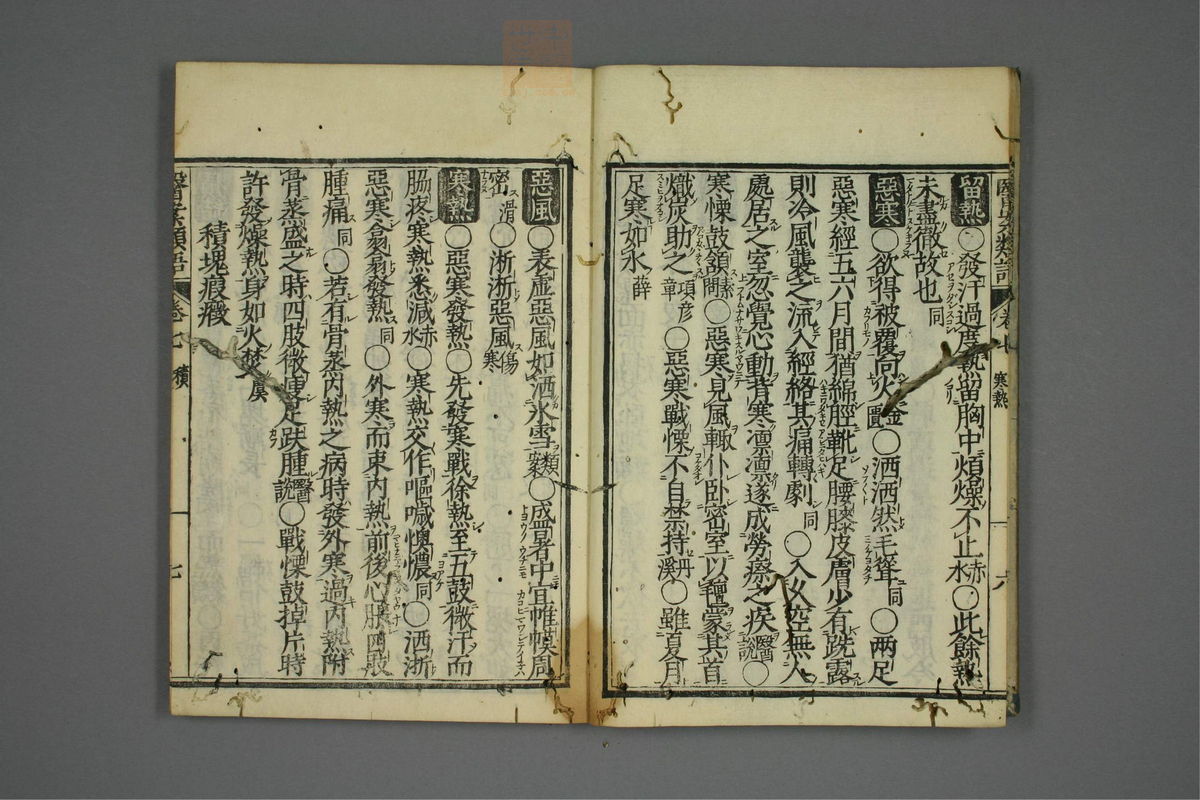 留熱〇發汗過度熱留胸中煩燥不止赤水〇此餘熱
未盡徹故也同
惡寒〇欲得被覆向火金匱〇洒洒然毛聳同〇兩足
惡寒經五六月間猶綿脛靴足腰膝皮膚少有跣露
則冷風襲之流入經絡其痛轉劇同〇入久空無人
處居之室忽覺心動背寒凛凛遂成勞瘵之疾醫說〇
寒慄鼓頷素問〇惡寒見風輙仆卧密室以氊蒙其首
熾炭助之項彦章〇惡寒戰慄不自禁持丹溪〇雖夏月
足寒如氷薛
寒熱
六
惡風〇表虚惡風如洒氷雪類案〇盛暑中宜帷幙周
密滑〇淅淅惡風傷寒
寒熱〇惡寒發熱〇先發寒戰徐熱至五鼓微汗而
脇疼寒熱悉減赤水〇寒熱交作嘔喊懊憹同〇洒淅
惡寒翕翕發熱同〇外寒而束内熱前後心脹四肢
腫痛同〇若有骨蒸内熱之病時發外寒過内熱附
骨蒸盛之時四肢微瘦足趺腫醫說〇戰慄鼓掉片時
許發燥熱身如火焚虞
積塊瘕癥
醫案類語
卷七
積
七